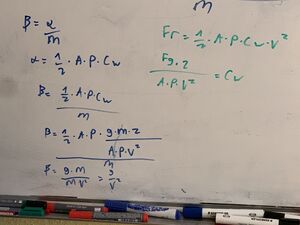 m
β = α/m
α = 1/2 · A · ρ · Cw
β = (1/2 · A · ρ · Cw)/m
β = (1/2 · A · ρ · (g · m · 2)/(A · ρ · v²))/m
β = (g · m)/(m v²) = g/v²
Fr = 1/2 · A · ρ · Cw · v²
(Fg · 2)/(A · ρ · v²) = Cw